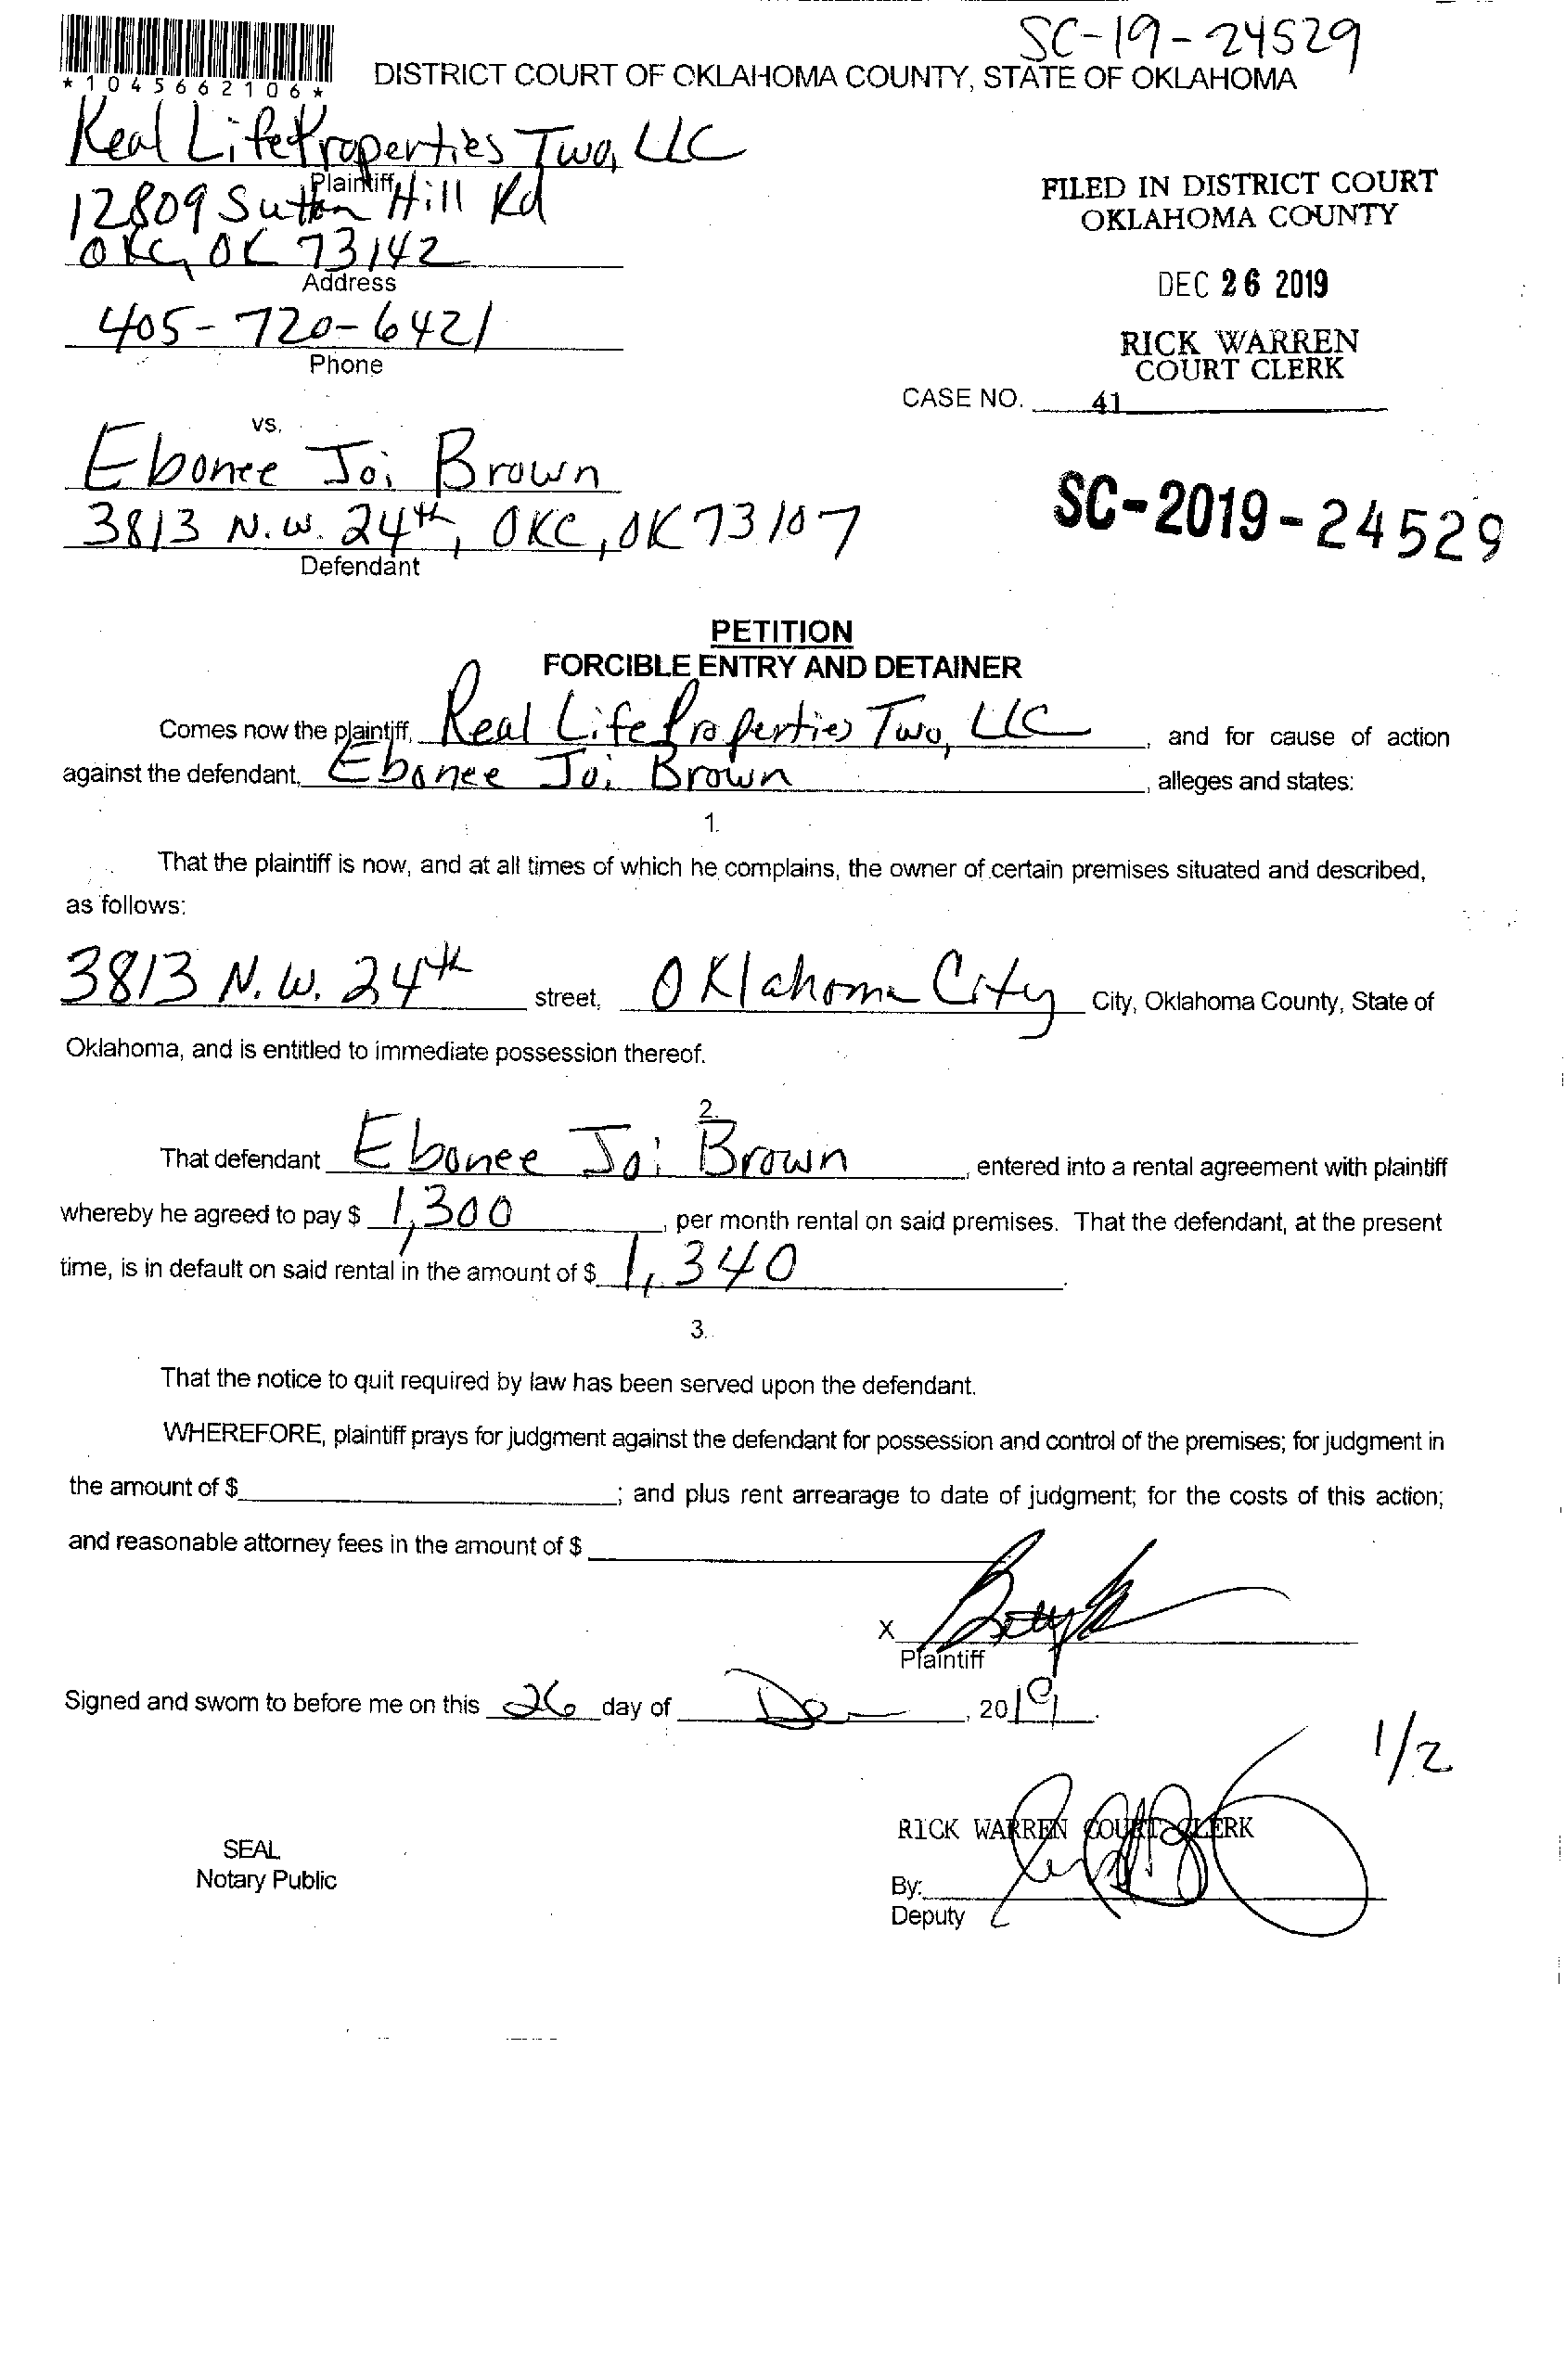 SC-19-24529
*1045662106*
DISTRICT COURT OF OKLAHOMA COUNTY, STATE OF OKLAHOMA
Real Life Properties Two, LLC
Plaintiff
12809 Sutton Hill Rd
OKC, OK 73142
Address
405-720-6421
Phone
FILED IN DISTRICT COURT
OKLAHOMA COUNTY
DEC 26 2019
RICK WARREN
COURT CLERK
CASE NO. 41
vs.
Ebonee Joi Brown
3813 N.W. 24th, OKC, OK 73107
Defendant
SC-2019-24529
PETITION
FORCIBLE ENTRY AND DETAINER
Comes now the plaintiff, Real Life Properties Two, LLC, and for cause of action
against the defendant, Ebonee Joi Brown, alleges and states:
1.
That the plaintiff is now, and at all times of which he complains, the owner of certain premises situated and described,
as follows:
3813 N.W. 24th street, Oklahoma City City, Oklahoma County, State of
Oklahoma, and is entitled to immediate possession thereof.
2.
That defendant Ebonee Joi Brown, entered into a rental agreement with plaintiff
whereby he agreed to pay $ 1,300, per month rental on said premises. That the defendant, at the present
time, is in default on said rental in the amount of $ 1,340.
3.
That the notice to quit required by law has been served upon the defendant.
WHEREFORE, plaintiff prays for judgment against the defendant for possession and control of the premises; for judgment in
the amount of $ ; and plus rent arrearage to date of judgment; for the costs of this action;
and reasonable attorney fees in the amount of $
X
Plaintiff
Signed and sworn to before me on this 26 day of De, 2019.
1/2
RICK WARREN COURT CLERK
SEAL
Notary Public
By:
Deputy